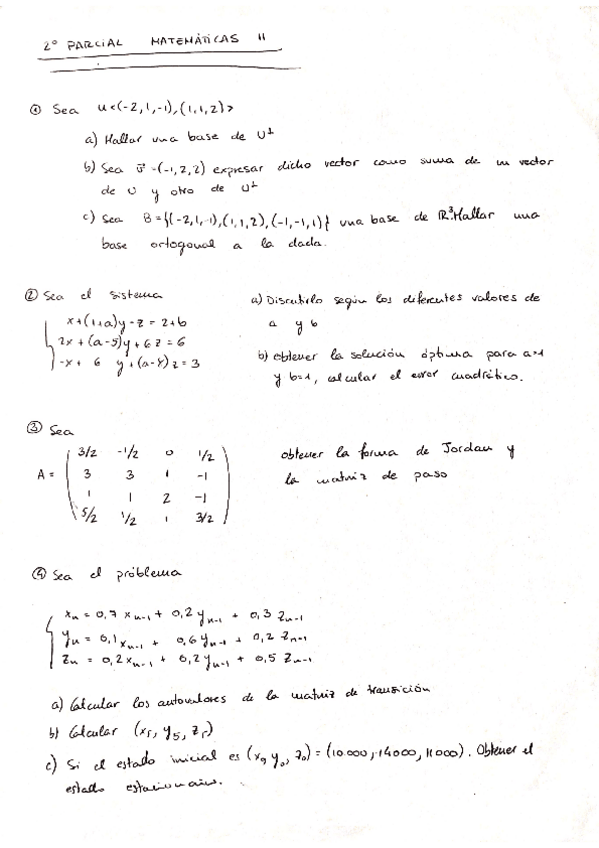 2º PARCIAL MATEMÁTICAS II
① Sea U<(-2,1,-1),(1,1,2)>
a) Hallar una base de U⊥
b) Sea v⃗ =(-1,2,2) expresar dicho vector como suma de un vector
de U y otro de U⊥
c) Sea B={(-2,1,-1),(1,1,2),(-1,-1,1)} una base de ℝ³. Hallar una
base ortogonal a la dada.
② Sea el sistema
x+(1+a)y-z=2+b
2x+(a-5)y+6z=6
-x+ 6 y+(a-8)z=3
a) Discutirlo según los diferentes valores de
a y b
b) obtener la solución óptima para a=1
y b=1, calcular el error cuadrático.
③ Sea
A = ( 3/2 -1/2 0 1/2
3 3 1 -1
1 1 2 -1
5/2 1/2 1 3/2 )
obtener la forma de Jordan y
la matriz de paso
④ Sea el problema
xn = 0,7 xn-1 + 0,2 yn-1 + 0,3 zn-1
yn = 0,1 xn-1 + 0,6 yn-1 + 0,2 zn-1
zn = 0,2 xn-1 + 0,2 yn-1 + 0,5 zn-1
a) Calcular los autovalores de la matriz de transición
b) Calcular (x5, y5, z5)
c) Si el estado inicial es (x0, y0, z0) = (10.000, 14000, 11000). Obtener el
estado estacionario.